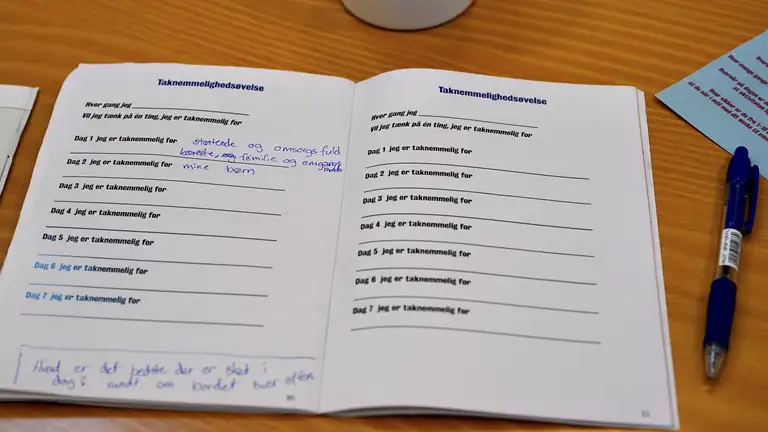 Taknemmelighedsøvelse
Hver gang jeg
Vil jeg tænk på én ting, jeg er taknemmelig for
Dag 1 jeg er taknemmelig for støttende og omsorgsfuld
kæreste, familie og omgangs
Dag 2 jeg er taknemmelig for mine børn
Dag 3 jeg er taknemmelig for
Dag 4 jeg er taknemmelig for
Dag 5 jeg er taknemmelig for
Dag 6 jeg er taknemmelig for
Dag 7 jeg er taknemmelig for
Hvad er det bedste der er sket i
dag 6 rundt om bordet hver aften
Taknemmelighedsøvelse
Hver gang jeg
Vil jeg tænk på én ting, jeg er taknemmelig for
Dag 1 jeg er taknemmelig for
Dag 2 jeg er taknemmelig for
Dag 3 jeg er taknemmelig for
Dag 4 jeg er taknemmelig for
Dag 5 jeg er taknemmelig for
Dag 6 jeg er taknemmelig for
Dag 7 jeg er taknemmelig for